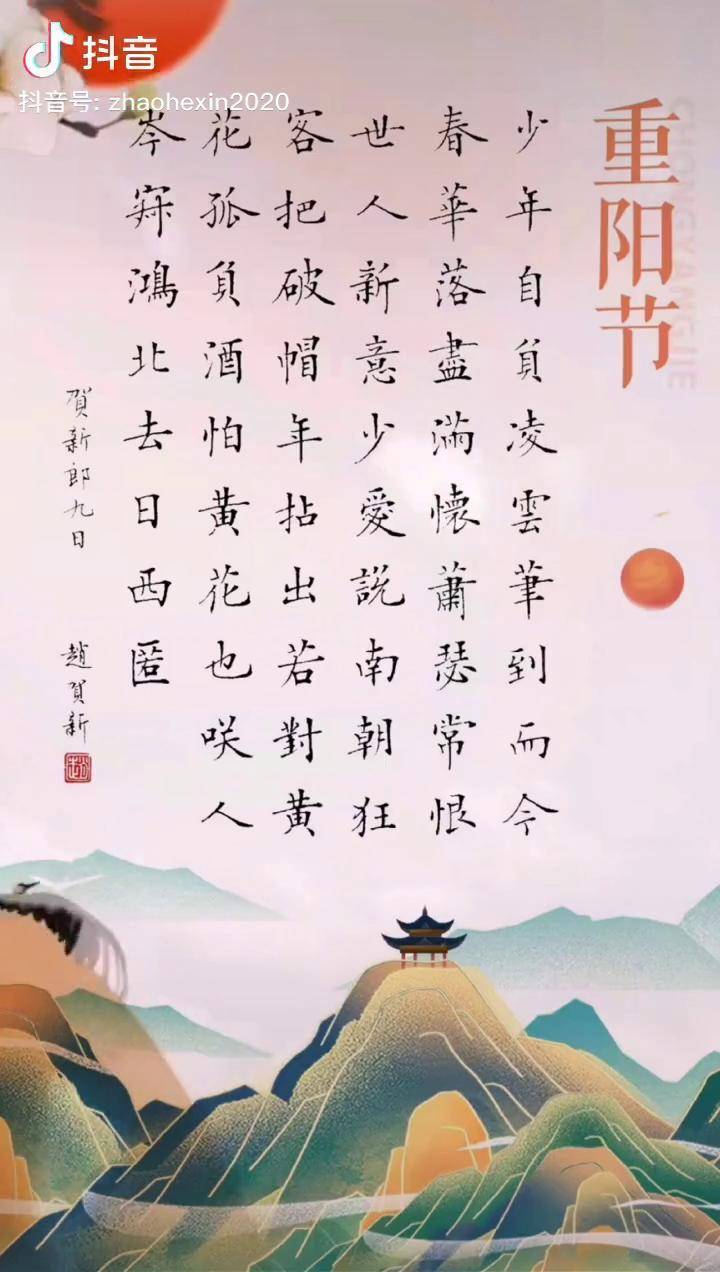 抖音
抖音号: zhaohexin2020
重阳节
CHONGYANGJIE
少年自負凌雲筆到而今
春華落盡滿懷蕭瑟常恨
世人新意少愛説南朝狂
客把破帽年拈出若對黃
花孤負酒怕黃花也咲人
岑寂鴻北去日西匿
賀新郎九日
趙賀新